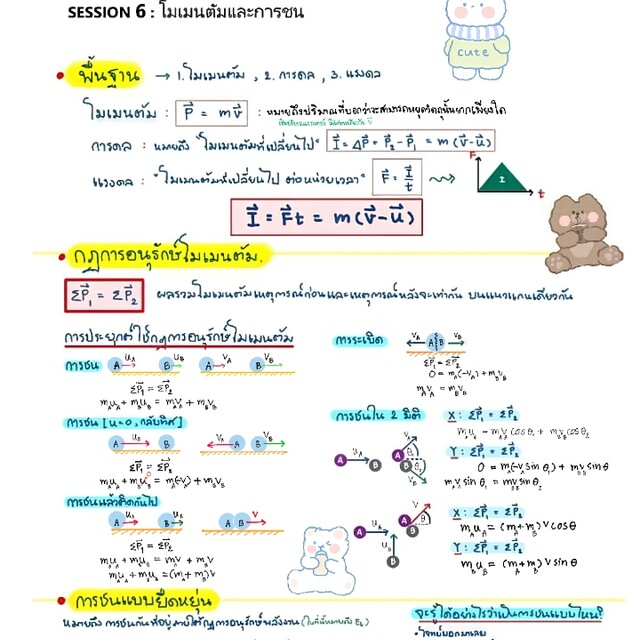 SESSION 6 : โมเมนตัมและการชน
cute
• พื้นฐาน → 1. โมเมนตัม , 2. การดล , 3. แรงดล
โมเมนตัม : P⃗ = mv⃗ : หมายถึงปริมาณที่บอกว่าจะสามารถหยุดวัตถุนั้นยากเพียงใด
การดล : หมายถึง "โมเมนตัมที่เปลี่ยนไป" I⃗ = ΔP⃗ = P⃗₂ - P⃗₁ = m(v⃗-u⃗)
แรงดล : "โมเมนตัมที่เปลี่ยนไป ต่อหน่วยเวลา" F⃗ = I⃗/t
F I t
I⃗ = F⃗t = m(v⃗-u⃗)
• กฎการอนุรักษ์โมเมนตัม.
ΣP⃗₁ = ΣP⃗₂ ผลรวมโมเมนตัมเหตุการณ์ก่อนและเหตุการณ์หลังจะเท่ากัน บนแนวแกนเดียวกัน
การประยุกต์ใช้กฎการอนุรักษ์โมเมนตัม
การชน A u_A B u_B A v_A B v_B
ΣP⃗₁ = ΣP⃗₂
m_A u_A + m_B u_B = m_A v_A + m_B v_B
การชน [u=0, กลับทิศ]
A B v_A A B v_B
ΣP⃗₁ = ΣP⃗₂
m_A u_A + m_B u_B = m_A(-v_A) + m_B v_B
การชนแล้วติดกันไป
A u_A B u_B A B v
ΣP⃗₁ = ΣP⃗₂
m_A u_A + m_B u_B = m_A v_A + m_B v_B
m_A u_A + m_B u_B = (m_A + m_B) v
การระเบิด v_A A B v_B
ΣP⃗₁ = ΣP⃗₂
0 = m_A(-v_A) + m_B v_B
m_A v_A = m_B v_B
การชนใน 2 มิติ
A u_A B A v_A B v_B
X : ΣP⃗₁ = ΣP⃗₂
Y : ΣP⃗₁ = ΣP⃗₂
A u_A B u_B A B v θ
X : ΣP⃗₁ = ΣP⃗₂
m_A u_A = (m_A + m_B) v cosθ
Y : ΣP⃗₁ = ΣP⃗₂
m_B u_B = (m_A + m_B) v sinθ
• การชนแบบยืดหยุ่น
หมายถึง การชนกันที่อยู่ภายใต้กฎการอนุรักษ์พลังงาน (ในที่นี้หมายถึง E_k)
จะรู้ได้อย่างไรว่าเป็นการชนแบบไหน?
• โจทย์บอกมาเลย